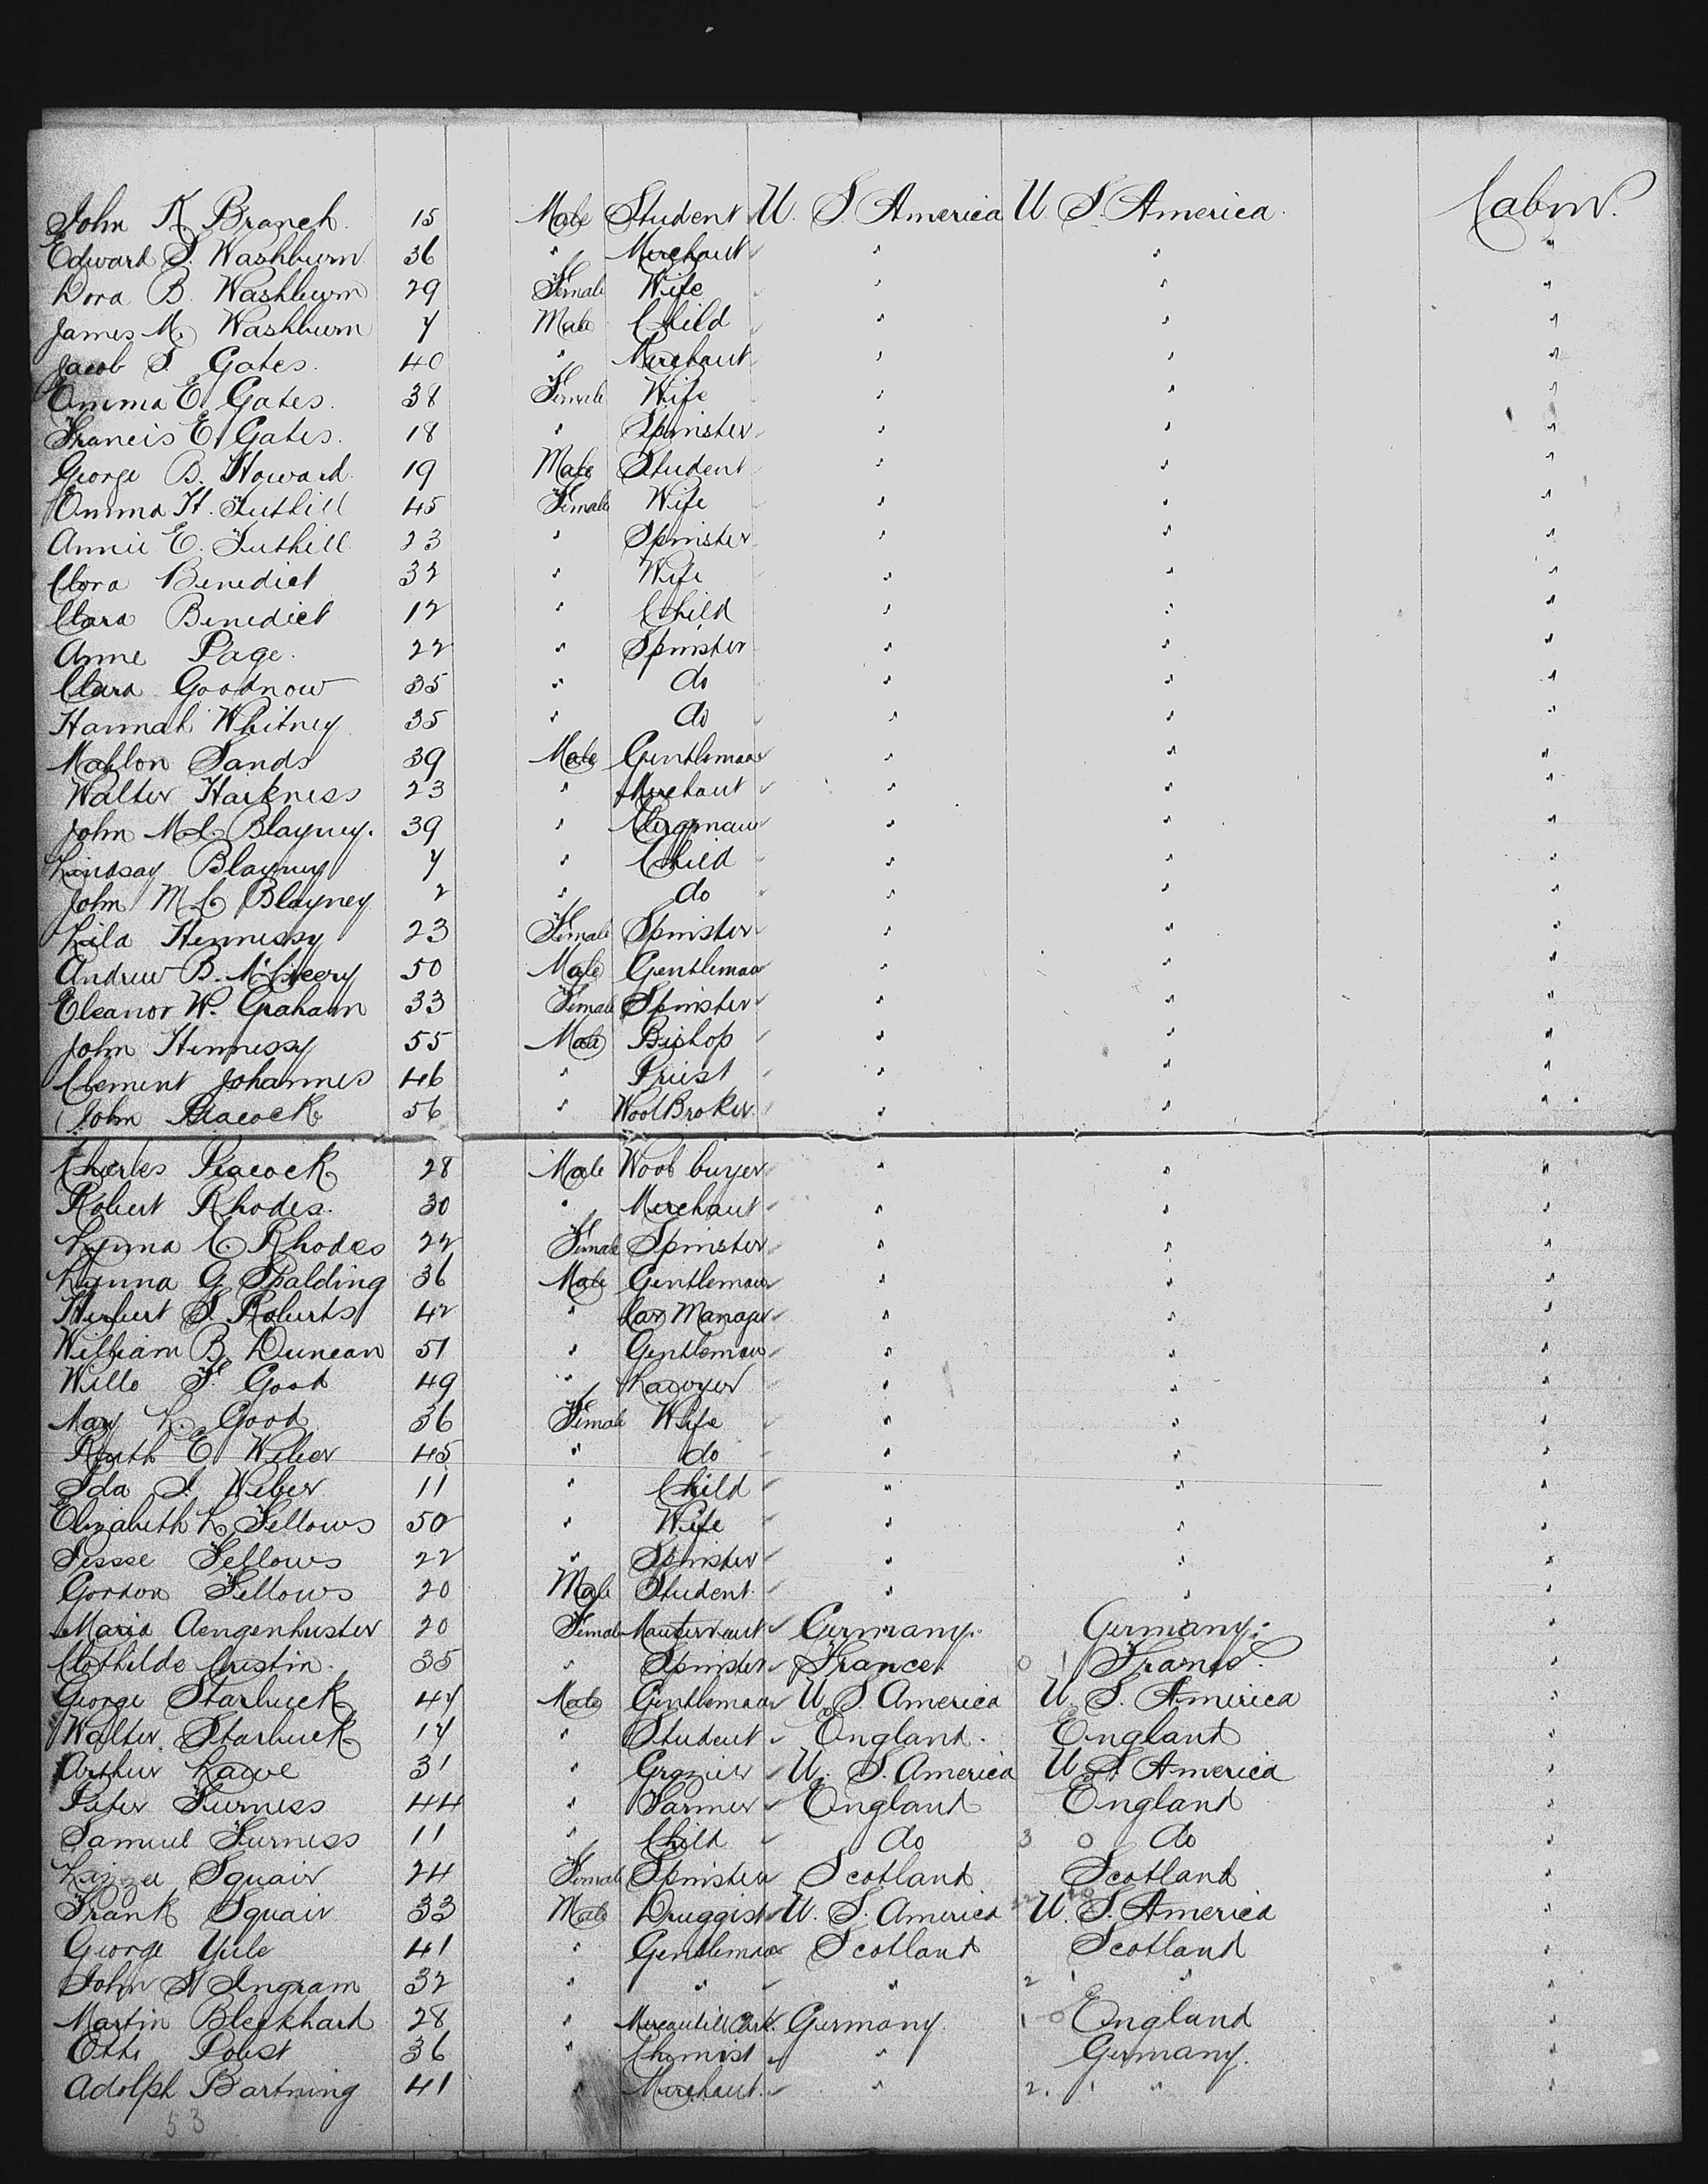 John K Branch. 15 Male Student U. S. America U S. America. Cabin.
Edward S. Washburn 36 " Merchant " " "
Dora B. Washburn 29 Female Wife " " "
James M. Washburn 7 Male Child " " "
Jacob S. Gates. 40 " Merchant " " "
Emma E. Gates. 38 Female Wife " " "
Francis E. Gates. 18 " Spinster " " "
George B. Howard. 19 Male Student " " "
Emma H. Tuthill 45 Female Wife " " "
Annie E. Tuthill 23 " Spinster " " "
Clara Benedict 32 " Wife " " "
Clara Benedict 12 " Child " " "
Anne Page. 22 " Spinster " " "
Clara Goodnow 35 " do " " "
Hannah Whitney 35 " do " " "
Mahlon Sands 39 Male Gentleman " " "
Walter Harkness 23 " Merchant " " "
John McC Blayney. 39 " Clergyman " " "
Lindsay Blayney 7 " Child " " "
John McC Blayney 2 " do " " "
Lila Hennessy 23 Female Spinster " " "
Andrew B. McCreery 50 Male Gentleman " " "
Eleanor W. Graham 33 Female Spinster " " "
John Hennessy 55 Male Bishop " " "
Clement Johannes 46 " Priest " " "
John Peacock 56 " Wool Broker " " "
Charles Peacock 28 Male Wool buyer " " "
Robert Rhodes. 30 " Merchant " " "
C Rhodes 22 Female Spinster " " "
G Spalding 36 Male Gentleman " " "
Herbert S. Roberts 42 " Car Manager " " "
William B. Duncan 51 " Gentleman " " "
F. Good 49 " Lawyer " " "
May L. Good 36 Female Wife " " "
Ruth E Weber 45 " do " " "
Ida I. Weber 11 " Child " " "
Elizabeth L. Fellows 50 " Wife " " "
Fellows 22 " Spinster " " "
Gordon Fellows 20 Male Student " " "
Maria Aengenhuster 20 Female Germany. Germany. "
Clothilde Cristin. 35 " Spinster France. 0 1 France. "
George Starbuck 47 Male Gentleman U. S. America U. S. America "
Walter Starbuck 17 " Student England. England "
Arthur Lawe 31 " Grazier U. S. America U. S. America "
Peter Furness 44 " Farmer England England "
Samuel Furness 11 " Child do 3 0 do "
Lizzie Squair 24 Female Spinster Scotland Scotland "
Frank Squair 33 Male Druggist U. S. America U. S. America "
George Yule 41 " Gentleman Scotland Scotland "
John Ingram 32 " " " 2 1 " "
Martin Bleckhard 28 " Mercantile Clerk. Germany. 1 0 England "
Otto Pobst 36 " Chemist " Germany. "
Adolph Bartning 41 " Merchant. " 2. 1 " "
53